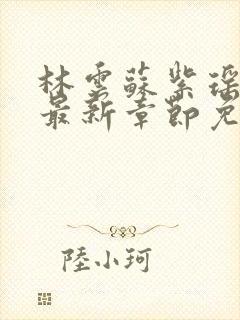 林雲蘇紫瑶
最新章節免
陸小珂